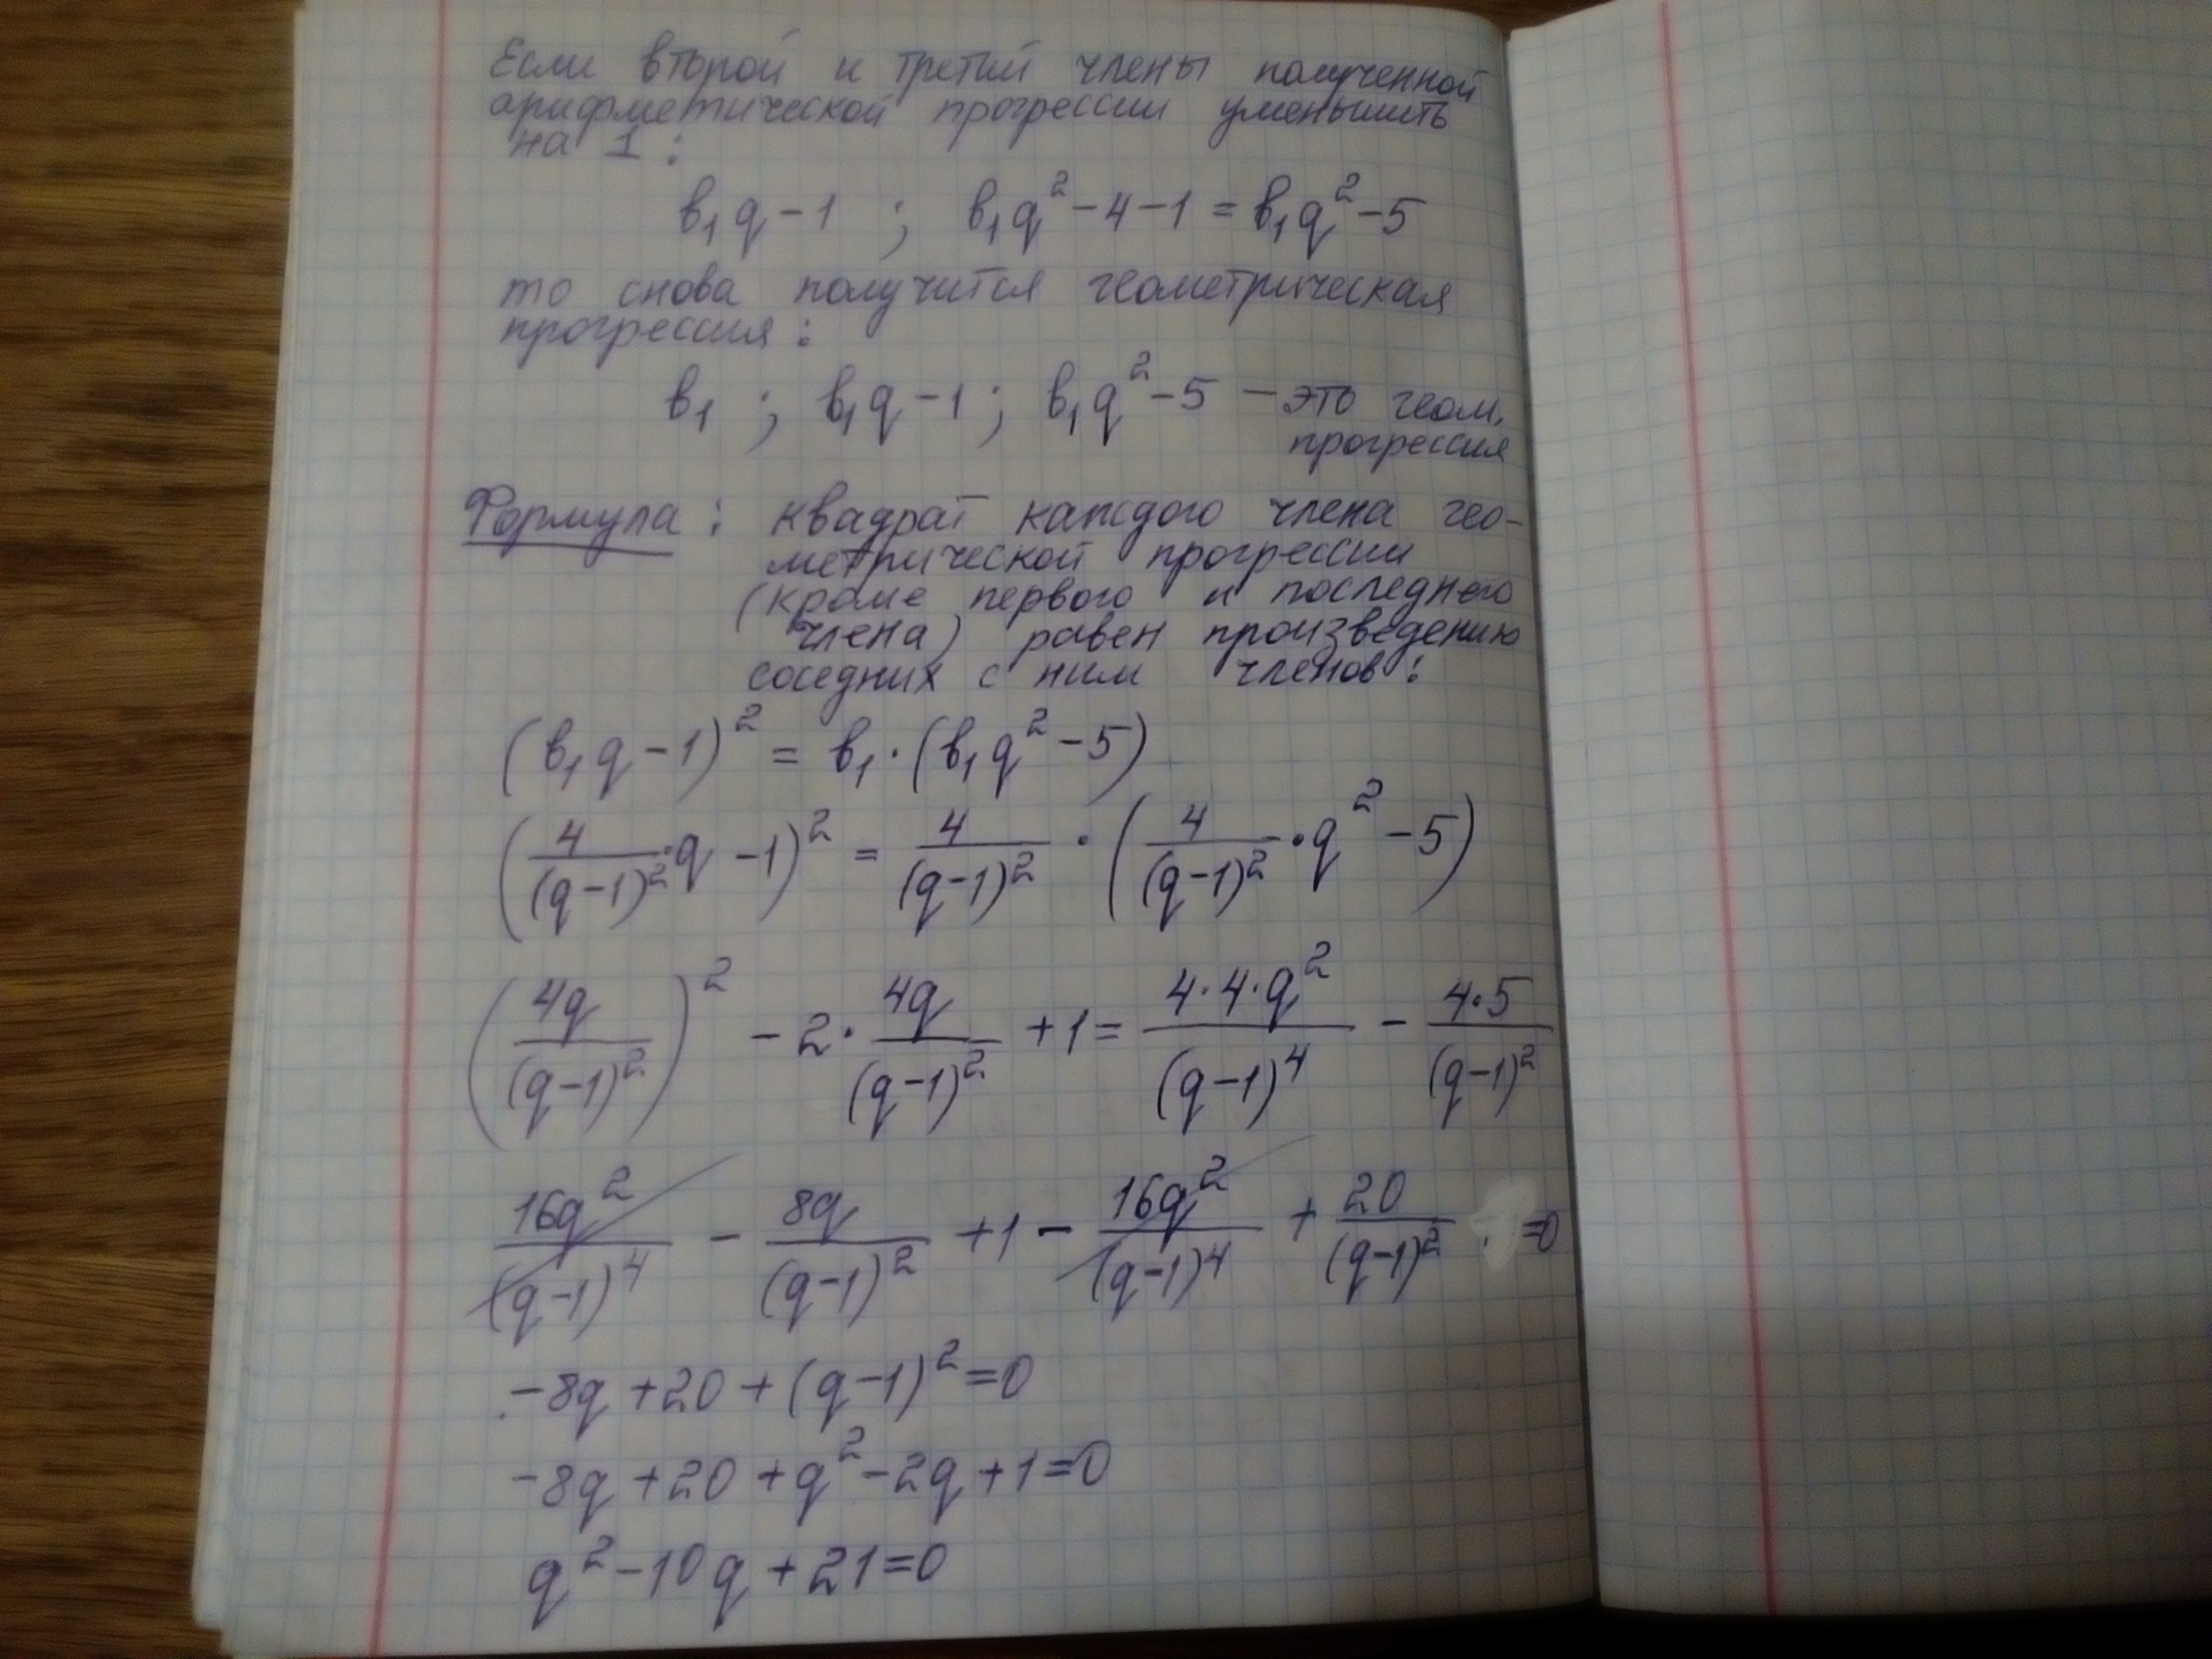 Если второй и третий члены полученной
арифметической прогрессии уменьшить
на 1:
b₁q-1 ; b₁q²-4-1=b₁q²-5
то снова получится геометрическая
прогрессия:
b₁ ; b₁q-1 ; b₁q²-5 — это геом.
прогрессия
Формула: квадрат каждого члена гео-
метрической прогрессии
(кроме первого и последнего
члена) равен произведению
соседних с ним членов:
(b₁q-1)² = b₁·(b₁q²-5)
(4/(q-1)²·q-1)² = 4/(q-1)² · (4/(q-1)²·q²-5)
(4q/(q-1)²)² - 2·4q/(q-1)² +1= 4·4·q²/(q-1)⁴ - 4·5/(q-1)²
16q²/(q-1)⁴ - 8q/(q-1)² +1 - 16q²/(q-1)⁴ + 20/(q-1)² =0
-8q+20+(q-1)²=0
-8q+20+q²-2q+1=0
q²-10q+21=0